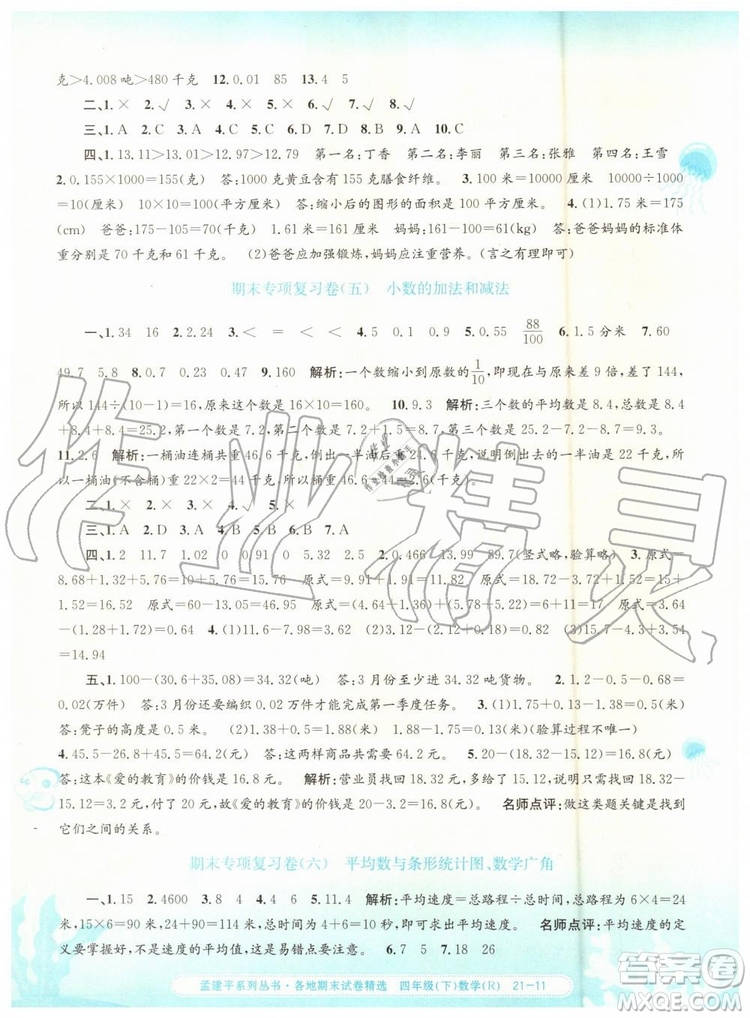 克＞4.008吨＞480千克 12.0.01 85 13.4 5
二、1.× 2.√ 3.√ 4.× 5.√ 6.√ 7.√
三、1.A 2.C 3.A 4.B 5.A 6.A 7.B 8.B 9.A 10.C
四、1.13.11＞12.96＞12.93＞12.79 第一名：丁香 第二名：李丽 第三名：张雅 第四名：王雪
2.0.155×1000=155(克) 答：1000克黄豆含有155克膳食纤维。 3.100米=10000厘米 10000÷1000
=10(厘米) 10×10=100(平方厘米) 答：缩小后的图形的面积是100平方厘米。 4.(1)1.75米=175
(cm) 爸爸：175-105=70(千克) 1.61米=161(cm) 妈妈：161-100=61(kg) 答：爸爸妈妈的标准体
重分别是70千克和61千克。 (2)爸爸应加强锻炼，妈妈应注重营养。(言之有理即可)
期末专项复习卷(五) 小数的加法和减法
一、1.34 16 2.2.24 3.＜ = ＜ ＜ 4.5 0.1 0.9 5.0.55 88/100 6.1.5分米 7.60
49.7 5.8 8.0.7 0.23 0.47 9.160 解析：一个数缩小到原数的1/10，即现在与原来差了144，
所以144÷(10-1)=16，原来这个数是16×10=160。 10.9.3 解析：三个数的平均数是8.4，总数是
8.4+8.4+8.4=25.2，第一个数是9.2，第二个数比第一个数少2.5，是6.7，所以第三个数是9.3。
11.2.6 解析：一桶油连桶共重46.6千克，倒出一半油后重24.6千克，倒出的一半油是22千克，所以一桶
油(不含桶)重22×2=44(千克)，桶重46.6-44=2.6(千克)。
二、1.× 2.√ 3.× 4.× 5.√
三、1.D 2.A 3.C 4.B 5.B 6.B 7.A
四、1.2 11.7 1.02 0.91 0 5.2 2.0.466 13.99 89.7(竖式略，验算略) 3.原式=
8.68-(4.32+2.68)=1.68 原式=5.17+1.83-3.2=3.8 原式=12.6+18.64-8.6=22.64 原式=
6.81-(4.32+1.68)=0.81 原式=5.26+2.74-0.78=7.22 原式=18.63-8.63-3.2=6.8 原式=3.64
-(1.28+1.72)=0.64 4.(1)11.6-7.98=3.62 (2)(1.32+0.68)-1.32=0.68 (3)8.56+8.56-2.18
=14.94
五、1.100-(30.6+35.08)=34.32(吨) 答：3月份至少进34.32吨货物。 2.1.2-0.5-0.68=
0.02(万件) 答：3月份还要编织0.02万件才能完成第一季度任务。 3.1.35-0.85=0.5(米)
答：凳子的高度是0.5米。 1.2+0.35=1.55(米) 答：他的身高是1.55米。(验算过程可不写)
4.45.5-26.8+45.5=64.2(元) 答：这两样商品共需要64.2元。 5.20-(18.32-15.12)=16.8(元)
答：这本《爱的教育》的价钱是16.8元。 解析：营业员找回18.32元，多找了18.32-15.12=3.2(元)，
实际找16.8+3.2元，付了20元，故《爱的教育》的价钱是20-3.2=16.8(元)。 名师点评：做这类题关键是找到
它们之间的关系。
期末专项复习卷(六) 平均数与条形统计图、数学广角
一、1.15 2.4600 3.12 4.3 2 5.11.4 解析：平均速度=总路程÷总时间，总路程为6×4=24
米，15×6=90米，24+90=114米，总时间为4+6=10秒，平均速度为114÷10=11.4米。 名师点评：平均速度的定
义要掌握好，不是速度的平均值，这是易错点要注意。 6.7 5 7.18 26
孟建平系列丛书·各地期末试卷精选 四年级(下)数学(R) 21-11
作业精灵
答案圈